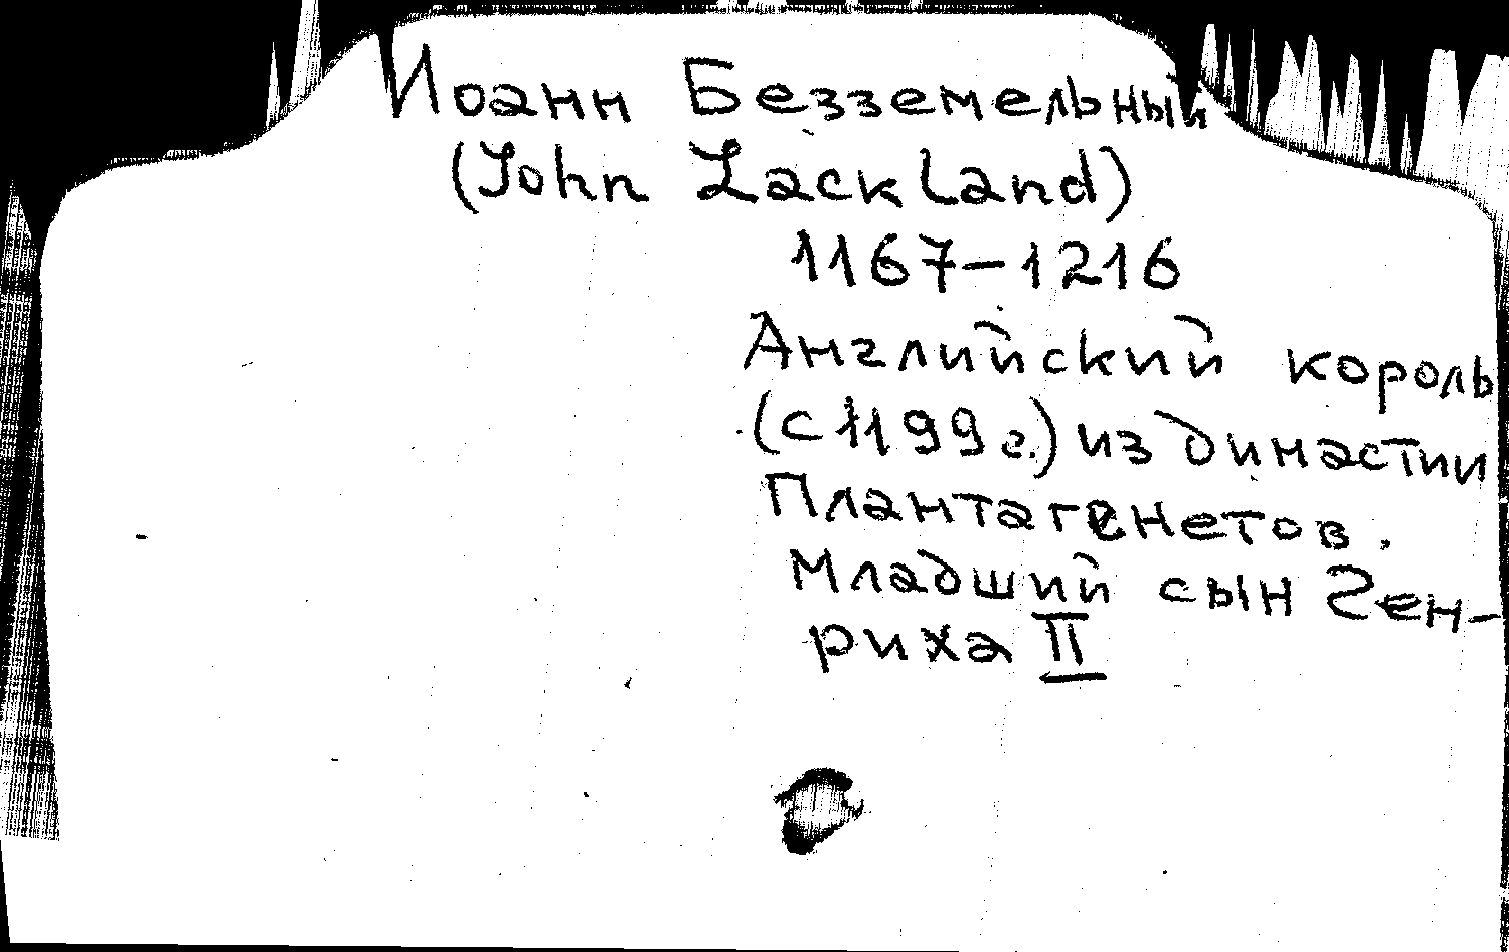 Иоанн Безземельный
(John Lackland)
1167–1216
Английский король
(с 1199 г.) из династии
Плантагенетов.
Младший сын Ген-
риха II